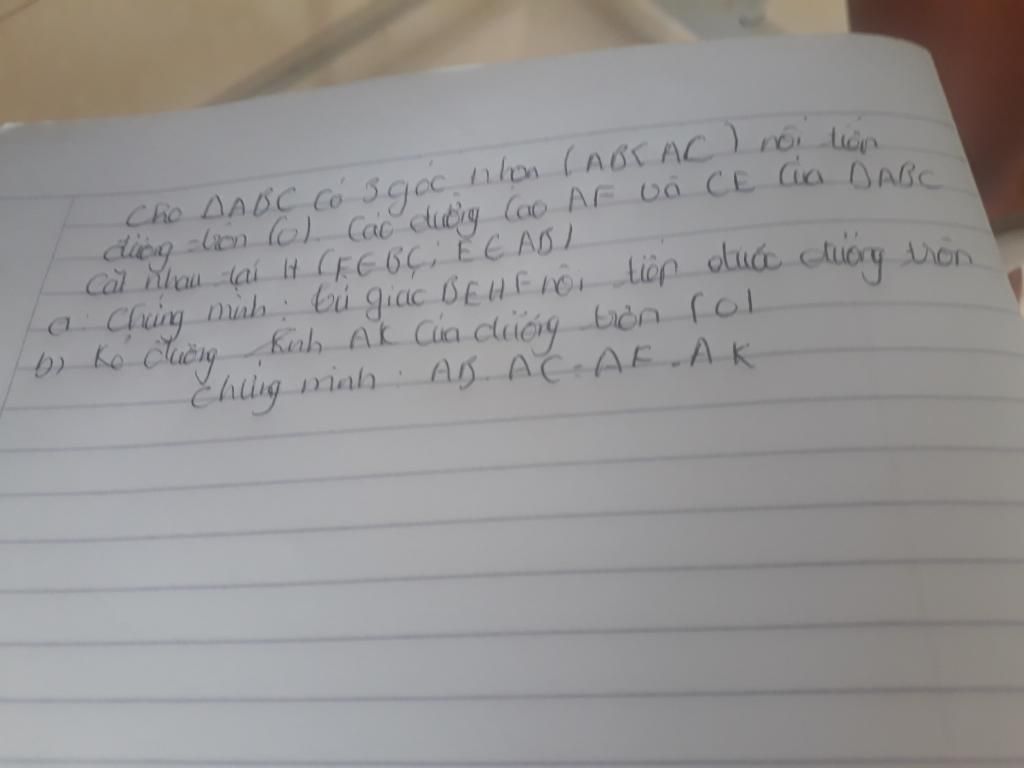 Cho ΔABC có 3 góc nhọn (AB<AC) nội tiếp
đường tròn (O). Các đường cao AF và CE của ΔABC
cắt nhau tại H (F∈BC; E∈AB)
a. Chứng minh: tứ giác BEHF nội tiếp được đường tròn
b) Kẻ đường kính AK của đường tròn (O)
Chứng minh: AB.AC=AF.AK